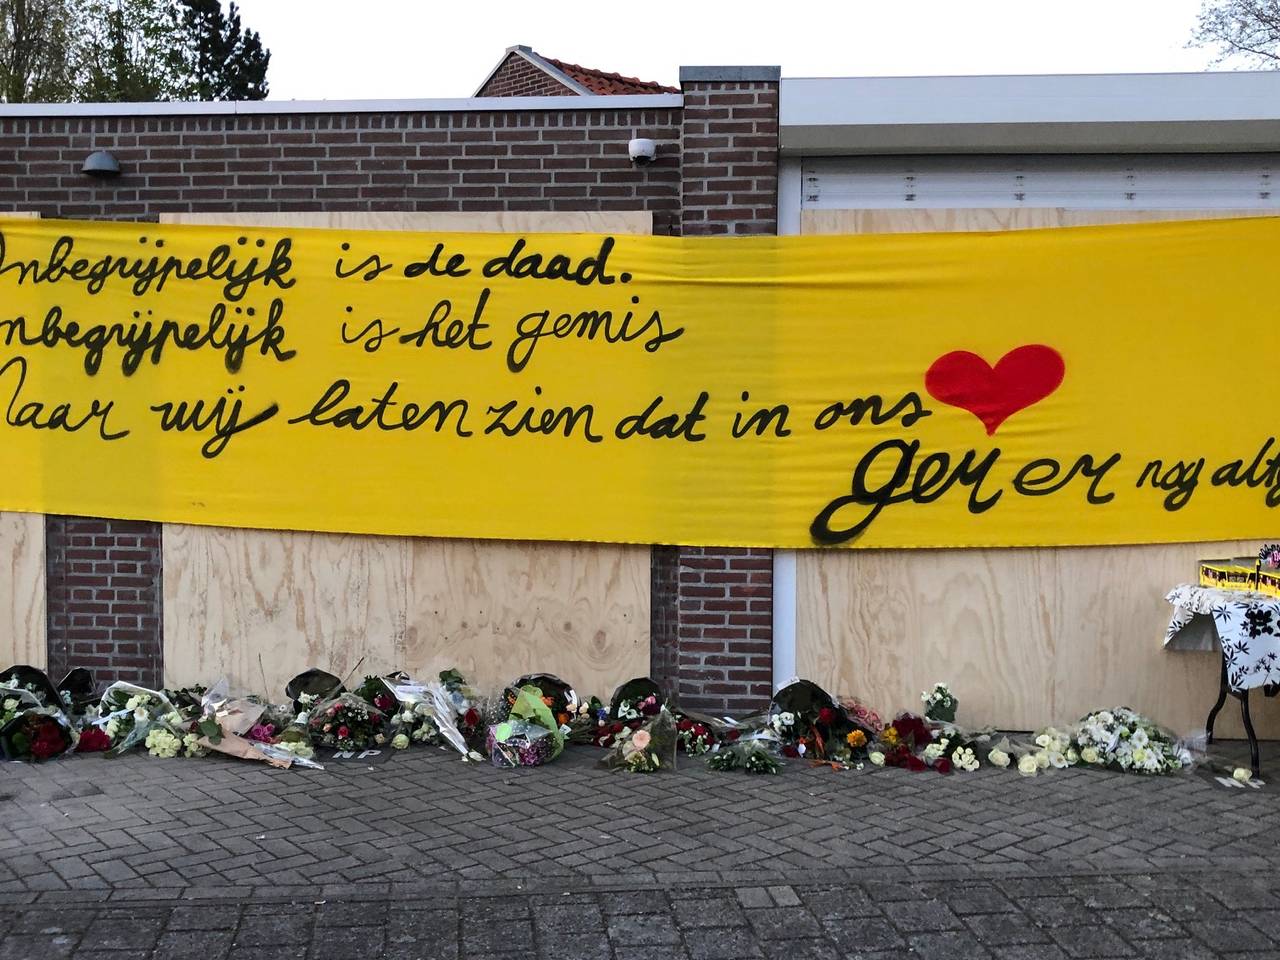 Onbegrijpelijk is de daad.
Onbegrijpelijk is het gemis
Maar wij laten zien dat in ons
ger er nog alt